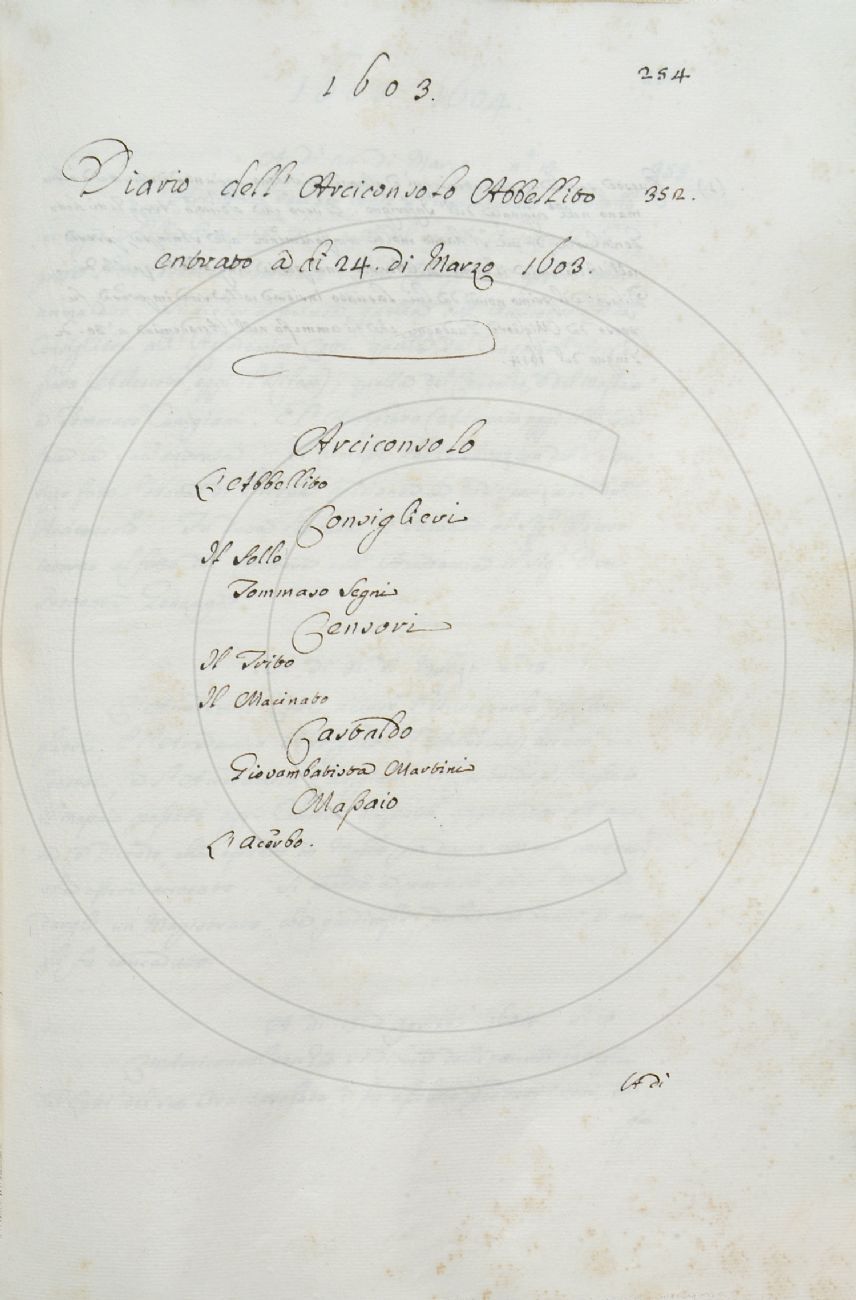 1603.
254
Diario dell' Arciconsolo Abbellito 352.
entrato à di 24. di Marzo 1603.
Arciconsolo
L'Abbellito
Consiglieri
Il Sollo
Tommaso Segni
Censori
Il Trito
Il Macinato
Castaldo
Giovambatista Martini
Maßaio
L'Acerbo.
A di